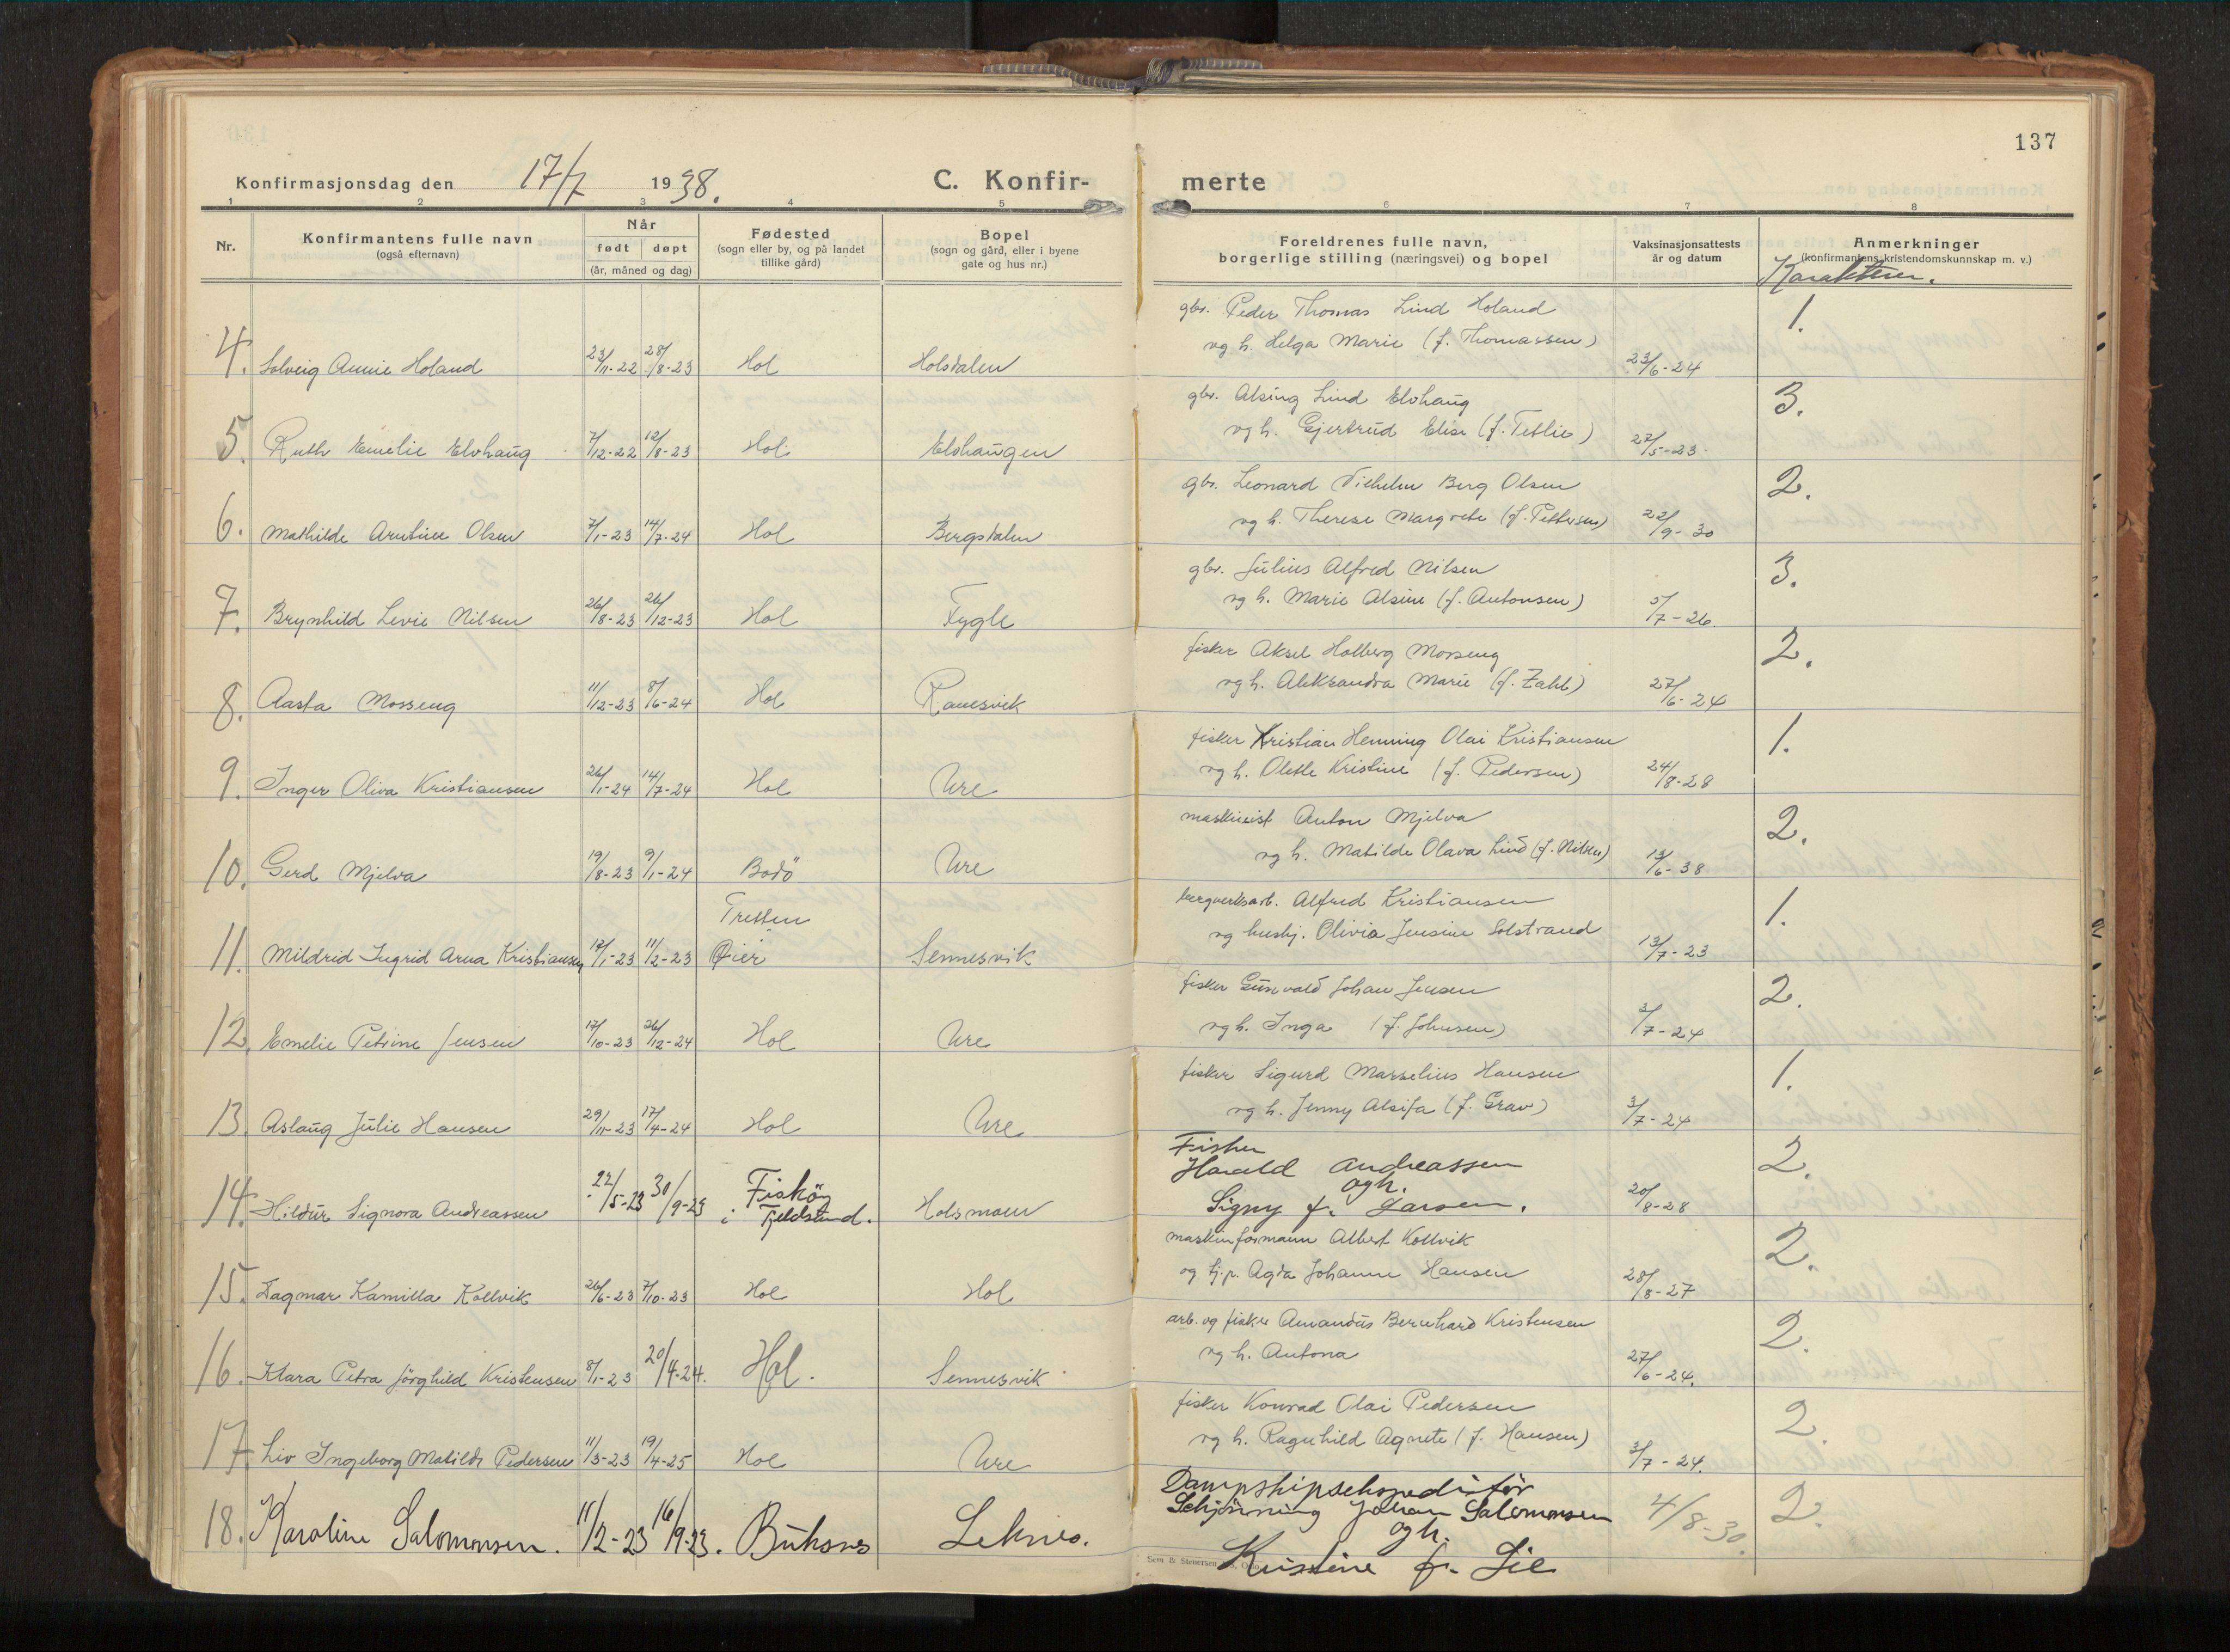 137
Konfirmasjonsdag den 17/7 1938.
C. Konfir-
merte
1 2 3 4 5 6 7 8
Nr.
Konfirmantens fulle navn
(også efternavn)
Når
født døpt
(år, måned og dag)
Fødested
(sogn eller by, og på landet
tillike gård)
Bopel
(sogn og gård, eller i byene
gate og hus nr.)
Foreldrenes fulle navn,
borgerlige stilling (næringsvei) og bopel
Vaksinasjonsattests
år og datum
Anmerkninger
(konfirmantens kristendomskunnskap m. v.)
Karakterer.
gbr. Peder Thomas Lind Holand 1.
og h. Helga Marie (f. Thomassen)
4. Solveig Annie Holand 23/11-22 28/8-23 Hol Holsdalen 23/6-24
gbr. Alsing Lind Elvhaug 3.
og h. Gjertrud Elise (f. Tetlie)
5. Ruth Emelie Elvhaug 7/12-22 12/8-23 Hol Elvhaugen 27/5-23
gbr. Leonard Vilhelm Berg Olsen 2.
og h. Therese Margrete (f. Pettersen)
6. Mathilde Arntine Olsen 7/1-23 14/7-24 Hol Bergsdalen 22/9-30
gbr. Julius Alfred Nilsen 3.
og h. Marie Alsine (f. Antonsen)
7. Brynhild Levie Nilsen 26/8-23 26/12-23 Hol Fygle 5/7-26.
fisker Aksel Holberg Mosseng 2.
og h. Aleksandra Marie (f. Zahl)
8. Aasta Mosseng 11/12-23 8/6-24 Hol Ramsvik 27/6-24
fisker Kristian Henning Olai Kristiansen 1.
og h. Oletle Kristine (f. Pedersen)
9. Inger Oliva Kristiansen 26/1-24 14/7-24 Hol Ure 24/8-28
maskinist Anton Mjelva 2.
og h. Matilde Olava Lind (f. Nilsen)
10. Gerd Mjelva 19/8-23 9/1-24 Bodö Ure 13/6-38
bergverksarb. Alfred Kristiansen 1.
og hushj. Olivia Jensine Solstrand
Tretten
11. Mildrid Ingrid Arna Kristiansen 17/1-23 11/2-23 Øier Sennesvik 13/7-23
fisker Gunvald Johan Jensen 2.
og h. Inga (f. Johnsen)
12. Emelie Petrine Jensen 17/10-23 26/12-24 Hol Ure 3/7-24
fisker Sigurd Marselius Hansen 1.
og h. Jenny Alsifa (f. Grav)
13. Aslaug Julie Hansen 29/11-23 17/4-24 Hol Ure 3/7-24
Fisker
Harald Andreassen 2.
ogh.
Signy f. Larsen.
14. Hildur Signora Andreassen 22/5-23 30/9-23 Fisköy i Tjeldsund. Holsmoen 20/8-28
maskinformann Albert Kollvik 2.
og hj.p. Agda Johanne Hansen
15. Dagmar Kamilla Kollvik 26/6-23 7/10-23 Hol Hol 28/8-27
arb. og fisker Amandus Bernhard Kristensen 2.
og h. Antona
16. Klara Petra Jörghild Kristensen 8/1-23 20/4-24. Hol. Sennesvik 27/6-24.
fisker Konrad Olai Pedersen 2.
og h. Ragnhild Agnete (f. Hansen)
17. Liv Ingeborg Matilde Pedersen 11/3-23 19/4-25 Hol Ure 3/7-24.
Dampskipsekspeditör
Schjönning Johan Salomonsen
ogh.
Kristine f. Lie
18. Karoline Salomonsen. 11/2-23 16/9-23. Buksnes Leknes. 4/8-30. 2.
Sem & Stenersen